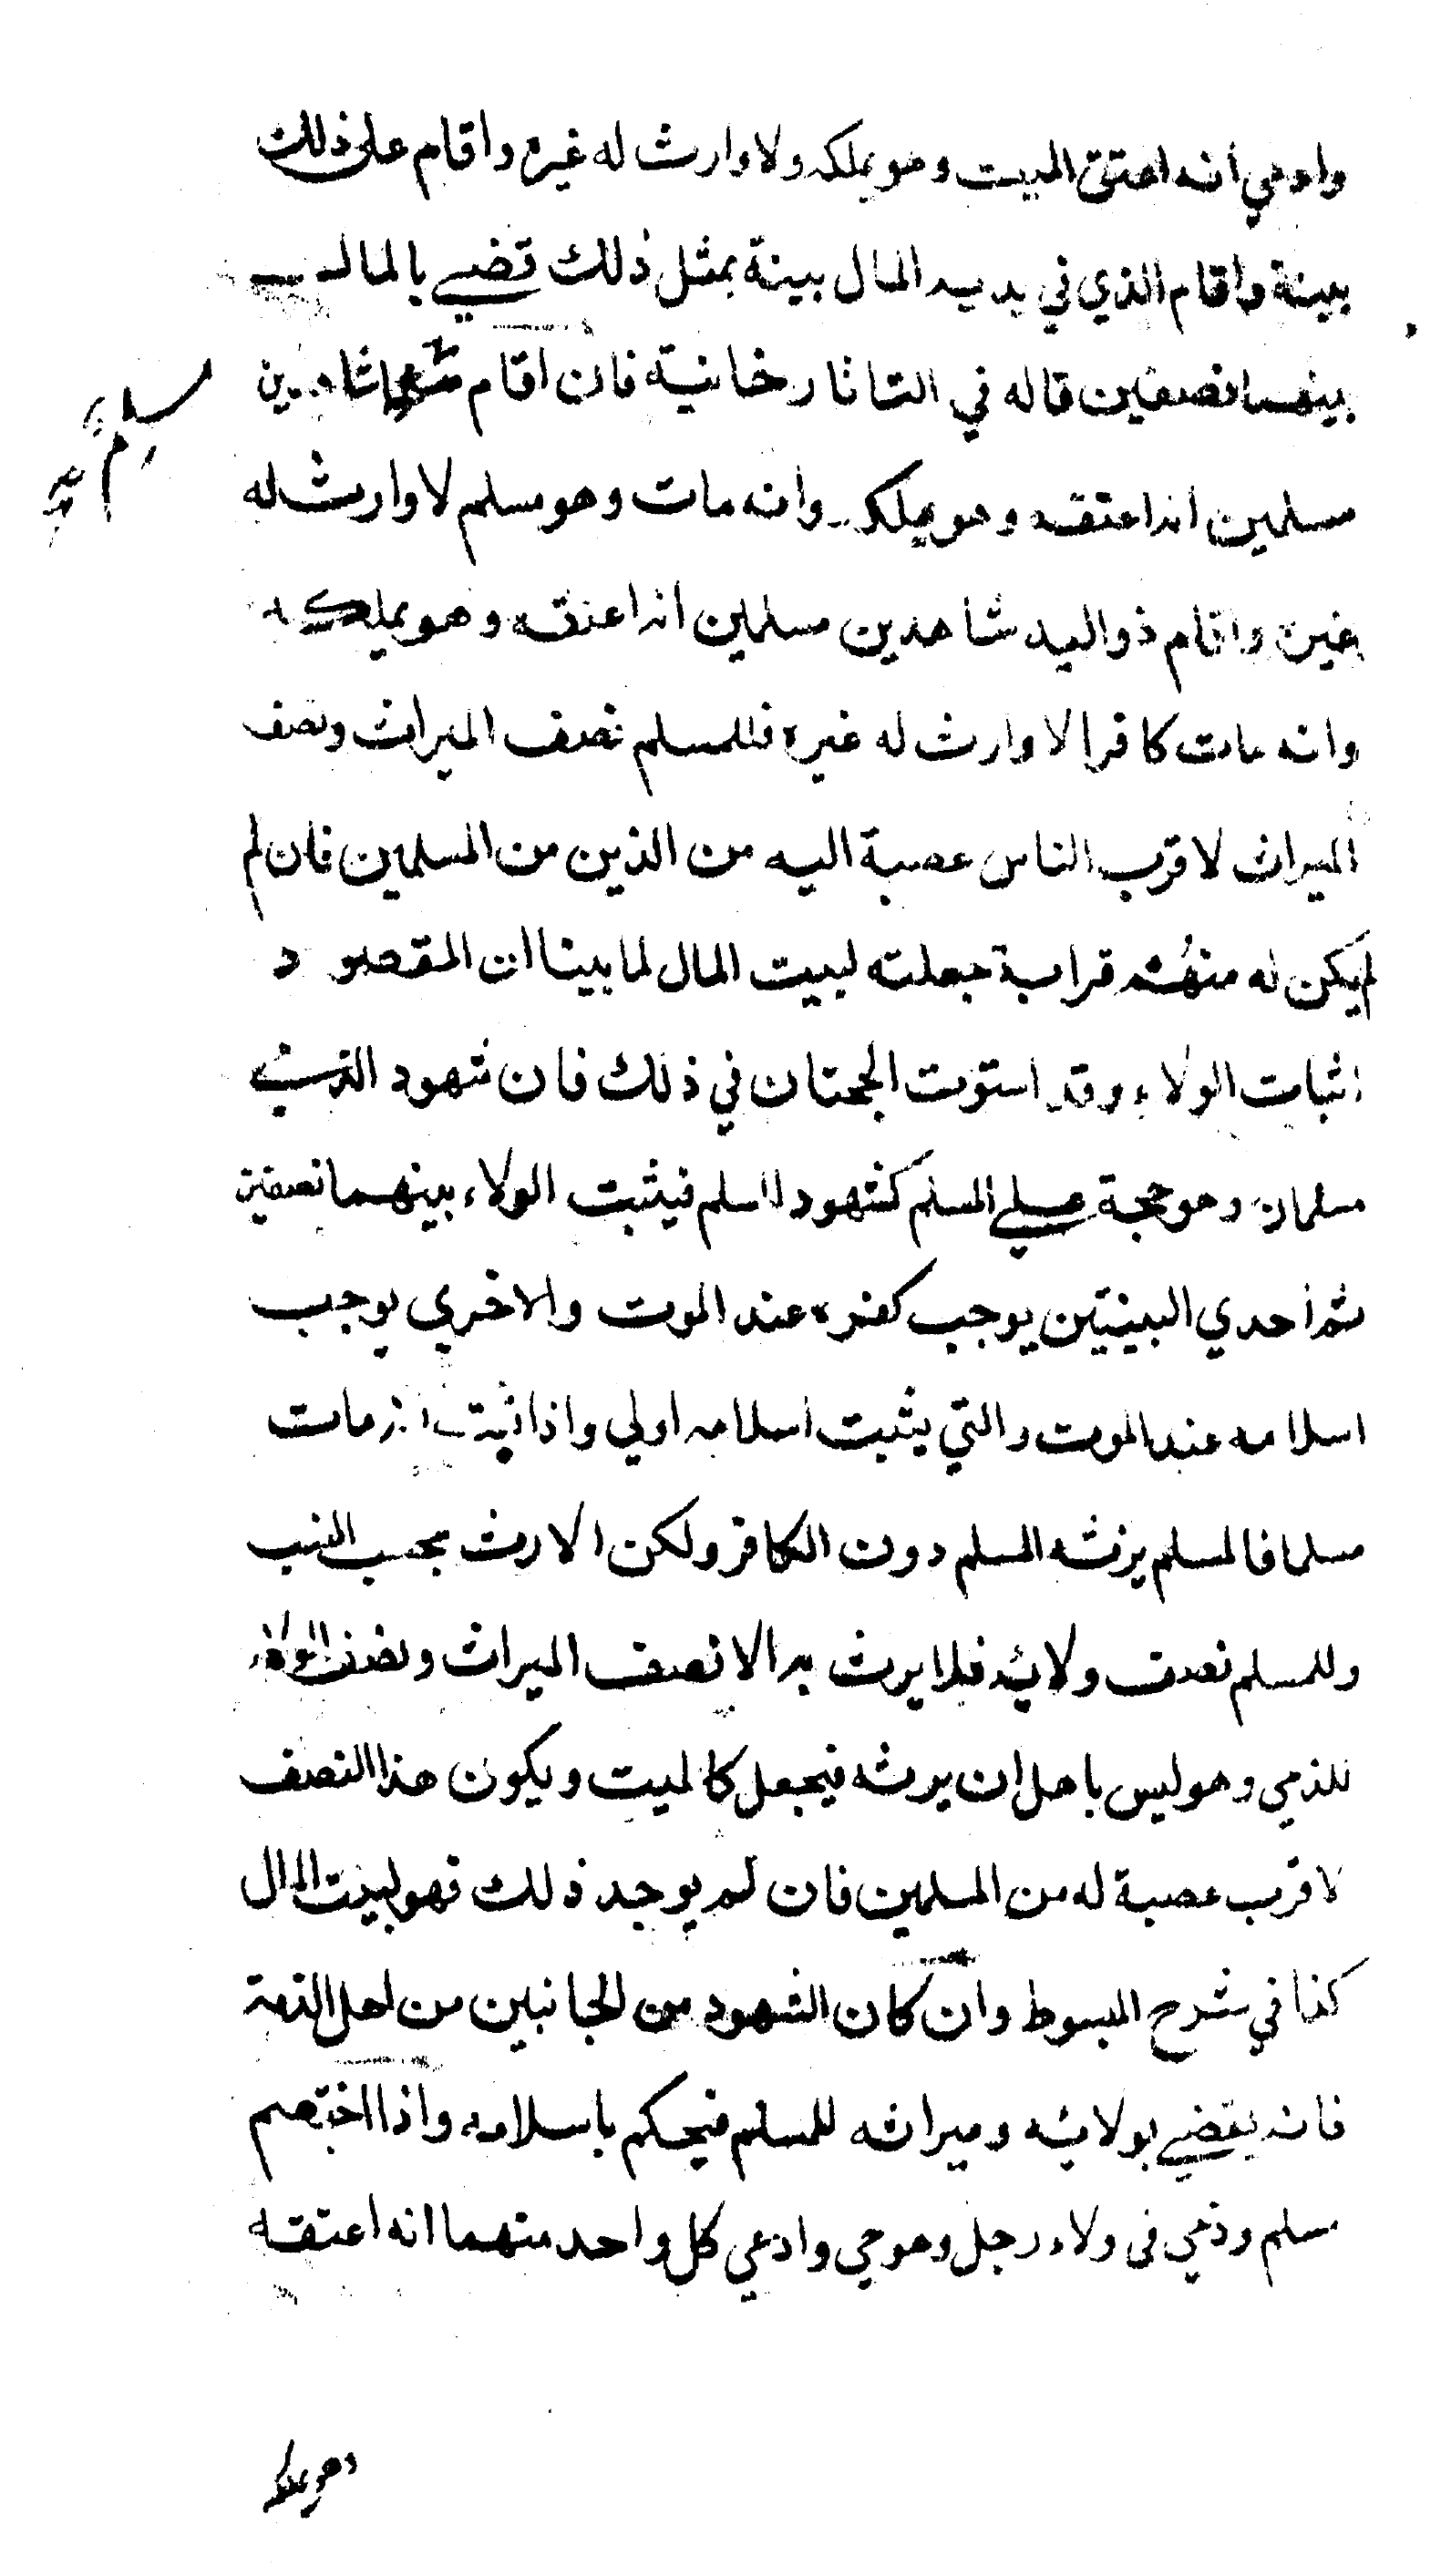 وادعي انه اعتق الميت وهو يملكه ولا وارث له غيره واقام على ذلك
بينة واقام الذي في يديه المال بينة بمثل ذلك قضي بالمال
بينهما نصفين قاله في التاتارخانية فان اقام شاهدين
مسلمين انه اعتقه وهو يملكه وانه مات وهو مسلم لا وارث له
غيره واقام ذو اليد شاهدين مسلمين انه اعتقه وهو يملكه
وانه مات كافرا لا وارث له غيره فللمسلم نصف الميراث ونصف
الميراث لاقرب الناس عصبة اليه من الذين من المسلمين فان لم
لم يكن له منهم قرابة جعلته لبيت المال لما بينا ان المقصود
اثبات الولاء وقد استوت الحجتان في ذلك فان شهود الذمي
مسلمان وهو حجة علي المسلم كشهود المسلم فيثبت الولاء بينهما نصفين
ثم احدي البينتين يوجب كفره عند الموت والاخري يوجب
اسلامه عند الموت والتي يثبت اسلامه اولي واذا ثبت انه مات
مسلما فالمسلم يرثه المسلم دون الكافر ولكن الارث بحسب السبب
وللمسلم نصف ولائه فلا يرث به الا نصف الميراث ونصف الولاء
للذمي وهو ليس باهل ان يرثه فيجعل كالميت ويكون هذا النصف
لاقرب عصبة له من المسلمين فان لم يوجد ذلك فهو لبيت المال
كذا في شرح المبسوط وان كان الشهود من الجانبين من اهل الذمة
فانه يقضي بولائه وميراثه للمسلم فيحكم باسلامه واذا اختصم
مسلم وذمي فى ولاء رجل وهو حي وادعي كل واحد منهما انه اعتقه
وهو يملكه